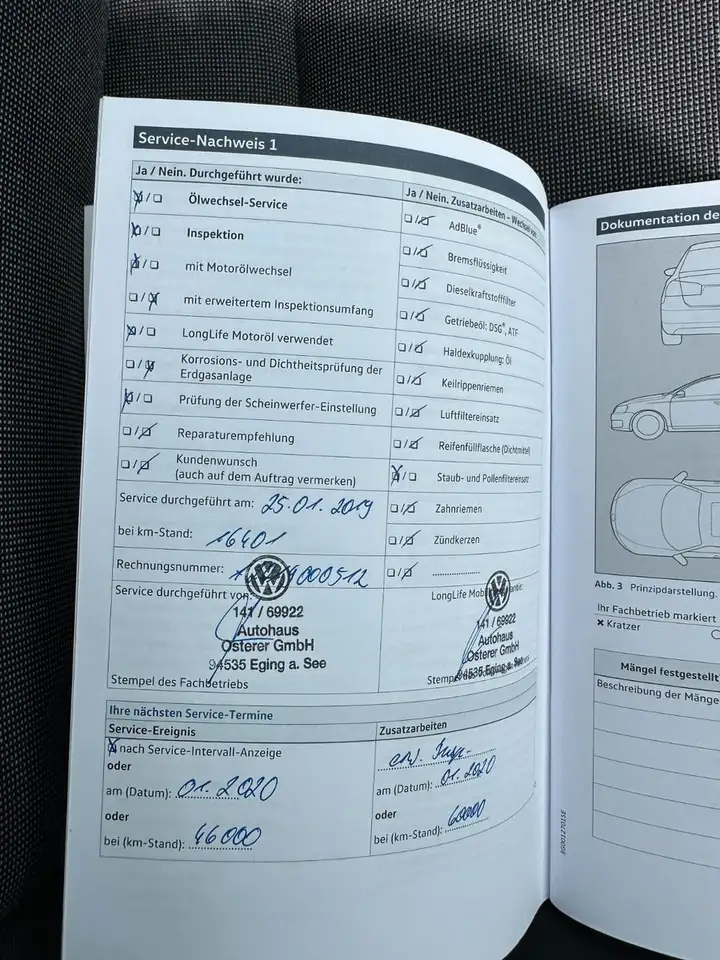 Service-Nachweis 1
Ja / Nein. Durchgeführt wurde:
Ölwechsel-Service
Inspektion
mit Motorölwechsel
mit erweitertem Inspektionsumfang
LongLife Motoröl verwendet
Korrosions- und Dichtheitsprüfung der
Erdgasanlage
Prüfung der Scheinwerfer-Einstellung
Reparaturempfehlung
Kundenwunsch
(auch auf dem Auftrag vermerken)
Ja / Nein. Zusatzarbeiten - Wechsel von:
AdBlue®
Bremsflüssigkeit
Dieselkraftstofffilter
Getriebeöl: DSG®, ATF
Haldexkupplung: Öl
Keilrippenriemen
Luftfiltereinsatz
Reifenfüllflasche (Dichtmittel)
Staub- und Pollenfiltereinsatz
Zahnriemen
Zündkerzen
Service durchgeführt am: 25.01.2019
bei km-Stand: 16401
Rechnungsnummer: 4000512
Service durchgeführt von:
141 / 69922
Autohaus
Osterer GmbH
94535 Eging a. See
Stempel des Fachbetriebs
LongLife
141 / 69922
Autohaus
Osterer GmbH
94535 Eging a. See
Ihre nächsten Service-Termine
Service-Ereignis
nach Service-Intervall-Anzeige
oder
am (Datum): 01.2020
oder
bei (km-Stand): 46000
Zusatzarbeiten
erw. Insp.
am (Datum): 01.2020
oder
bei (km-Stand): 60000
3G0012701SE
Dokumentation de
Abb. 3 Prinzipdarstellung.
Ihr Fachbetrieb markiert
× Kratzer
Mängel festgestellt
Beschreibung der Mänge